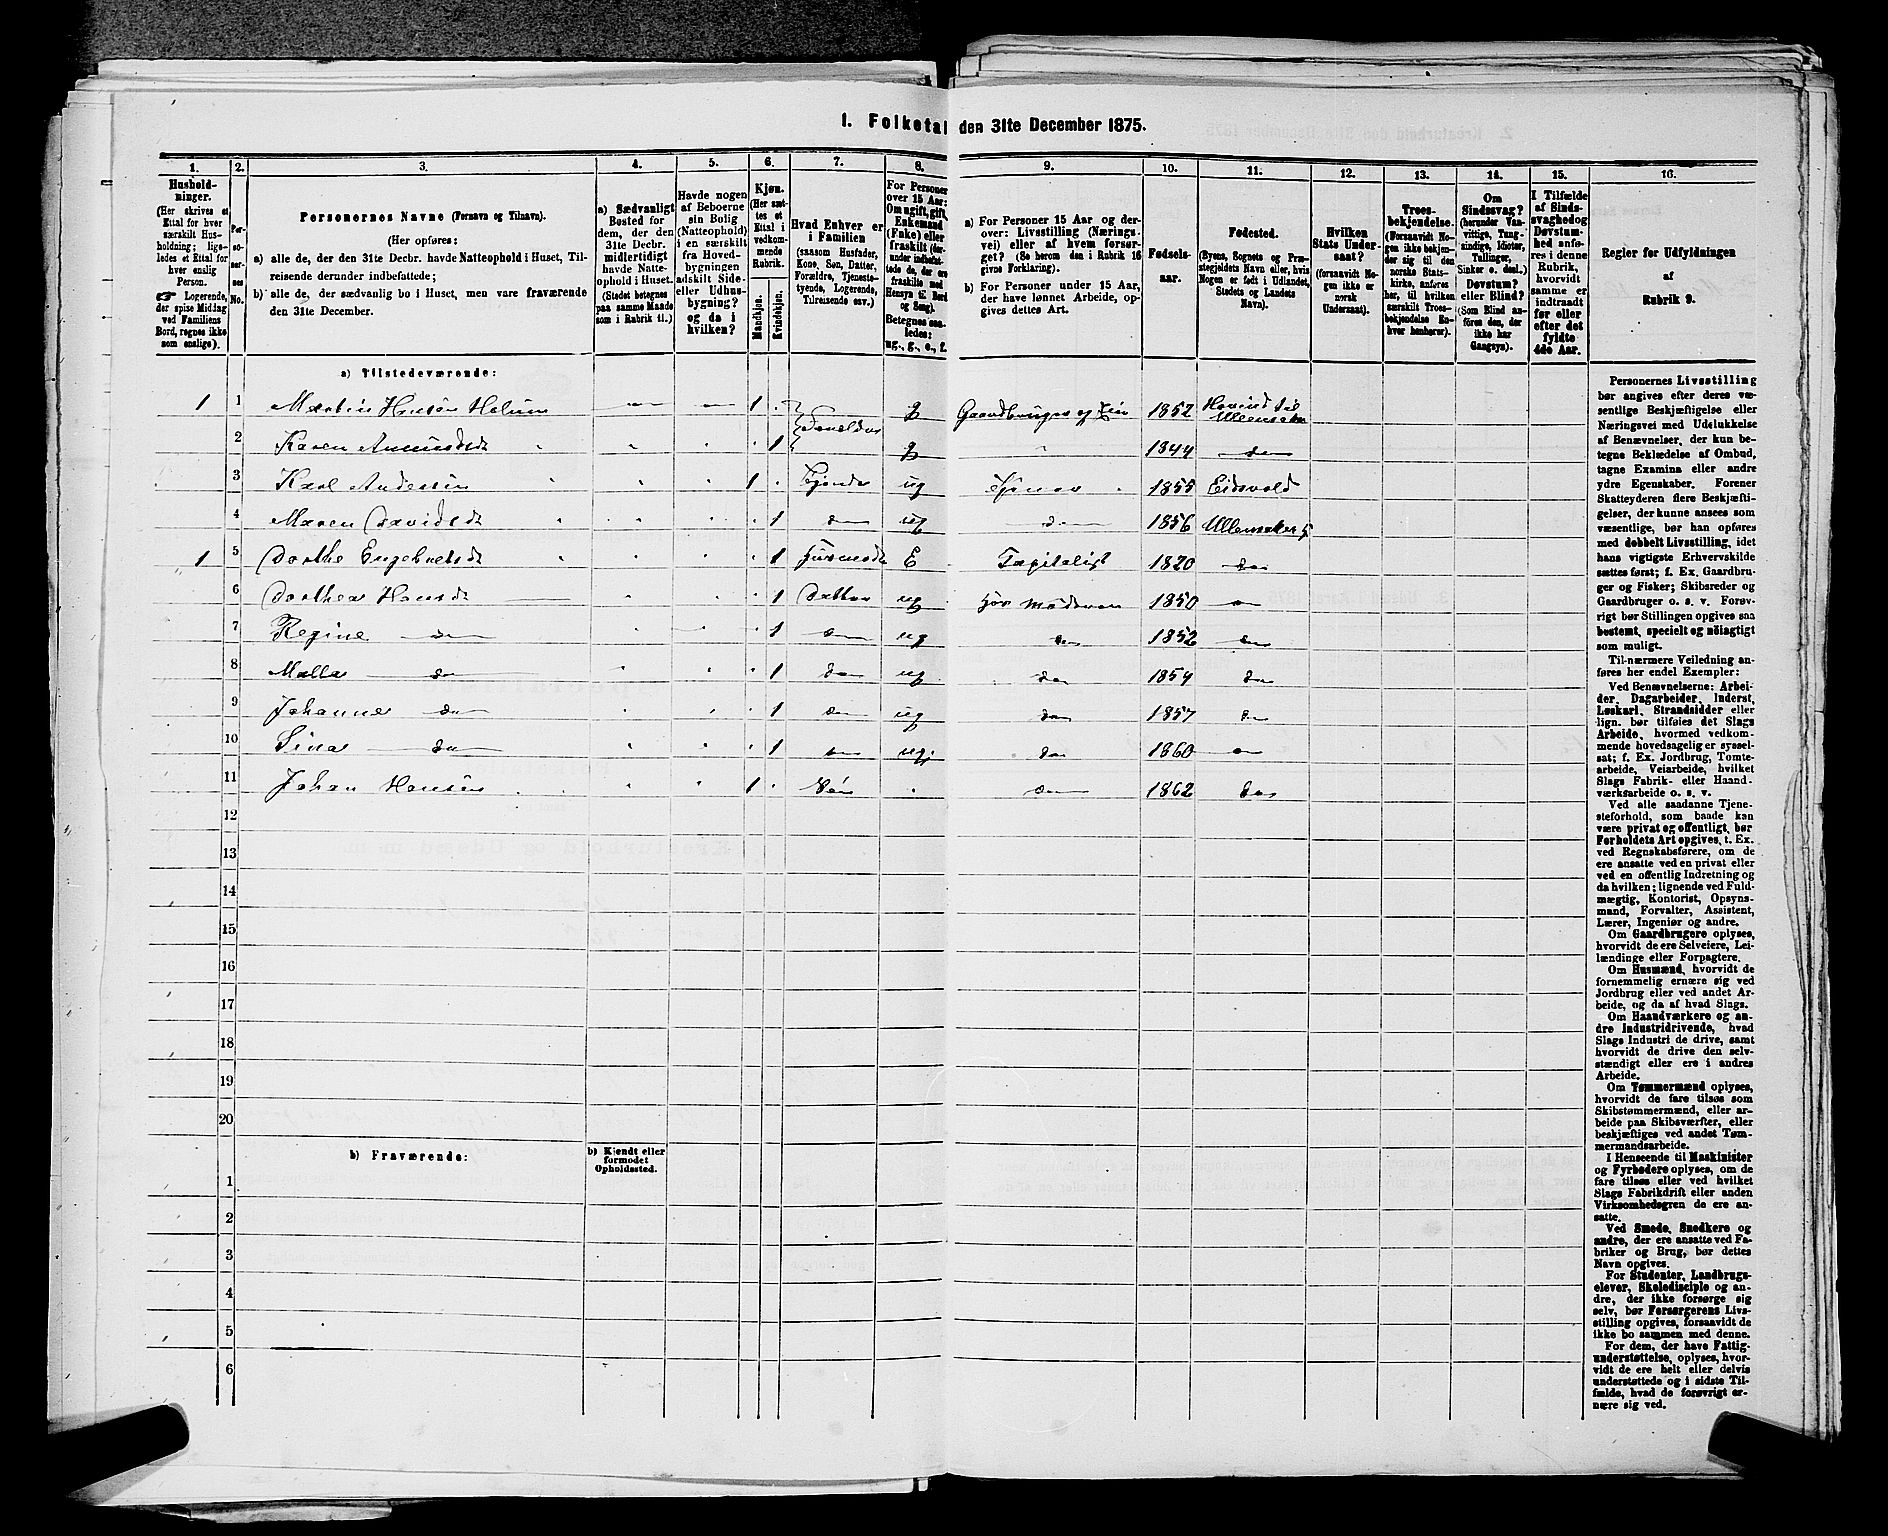 1. Folketal den 31te December 1875.
1. 2. 3. 4. 5. 6. 7. 8. 9. 10. 11. 12. 13. 14. 15. 16.
Hushold-
ninger.
(Her skrives et
Ettal for hver
særskilt Hus-
holdning; lige-
ledes et Ettal for
hver enslig
Person.
☛ Logerende,
der spise Middag
ved Familiens
Bord, regnes ikke
som enslige).
Per-
so-
ner-
nes
No.
Personernes Navne (Fornavn og Tilnavn).
(Her opføres:
a) alle de, der den 31te Decbr. havde Natteophold i Huset, Til-
reisende derunder indbefattede;
b) alle de, der sædvanlig bo i Huset, men vare fraværende
den 31te December.
a) Sædvanligt
Bosted for
dem, der den
31te Decbr.
midlertidigt
havde Natte-
ophold i Huset.
(Stedet betegnes
paa samme Maade
som i Rubrik 11.)
Havde nogen
af Beboerne
sin Bolig
(Natteophold)
i en særskilt
fra Hoved-
bygningen
adskilt Side-
eller Udhus-
bygning?
og da i
hvilken?
Kjøn.
(Her sæt-
tes et
Ettal i
vedkom-
mende
Rubrik.
Mandkjøn.
Kvindekjøn.
Hvad Enhver er
i Familien
(saasom Husfader,
Kone, Søn, Datter,
Forældre, Tjeneste-
tyende, Logerende,
Tilreisende osv.)
For Personer
over 15 Aar:
Om ugift, gift,
Enkemand
(Enke) eller
fraskilt (der-
under indbefat-
tede de, der ere
fraskilte med
Hensyn til Bord
og Seng).
Betegnes saa-
ledes:
ug., g., e., f.
a) For Personer 15 Aar og der-
over: Livsstilling (Nærings-
vei) eller af hvem forsør-
get? (Se herom den i Rubrik 16
givne Forklaring).
b) For Personer under 15 Aar,
der have lønnet Arbeide, op-
gives dettes Art.
Fødsels-
aar.
Fødested.
(Byens, Sognets og Præ-
stegjeldets Navn eller, hvis
Nogen er født i Udlandet,
Stedets og Landets
Navn).
Hvilken
Stats Under-
saat?
(forsaavidt No-
gen ikke er
norsk
Undersaat).
Troes-
bekjendelse.
(Forsaavidt No-
gen ikke bekjen-
der sig til den
norske Stats-
kirke, anføres
her, til hvilken
særskilt Troes-
bekjendelse En-
hver henhører).
Om
Sindssvag?
(herunder Van-
vittige, Tung-
sindige, Idioter,
Tullinger,
Sinker o. desl.)
Døvstum?
eller Blind?
(Som Blind an-
føres den, der
ikke har
Gangsyn).
I Tilfælde
af Sinds-
svaghed og
Døvstum-
hed anfø-
res i denne
Rubrik,
hvorvidt
samme er
indtraadt
før eller
efter det
fyldte
4de Aar.
Regler for Udfyldningen
af
Rubrik 9.
a) Tilstedeværende:
1 1 Martin Hansen Holum 1 g Gaardbruger 1852 Hovind til Ullensaker
2 Karen Amundsdt 1 g 1844 do
3 Karl Andersen 1 Tjener ug Tjener 1855 Eidsvold
4 Maren Davidsdt 1 do ug do 1856 Ullensaker
1 5 Dorthe Engebretsdt 1 E 1820 do
6 Dorthea Hansdt 1 Datter ug for Moderen 1850 do
7 Regine do 1 do ug do 1852 do
8 Malla do 1 do ug do 1854 do
9 Johanne do 1 do ug do 1857 do
10 Sina do 1 do ug do 1860 do
11 Johan Hansen 1 Søn do 1862 do
12
13
14
15
16
17
18
19
20
b) Fraværende:
b) Kjendt eller
formodet
Opholdssted.
1
2
3
4
5
6
Personernes Livsstilling
bør angives efter deres væ-
sentlige Beskjæftigelse eller
Næringsvei med Udelukkelse
af Benævnelser, der kun be-
tegne Beklædelse af Ombud,
tagne Examina eller andre
ydre Egenskaber. Forener
Skatteyderen flere Beskjæfti-
gelser, der kunne ansees som
væsentlige, bør han opføres
med dobbelt Livsstilling, idet
hans vigtigste Erhvervskilde
sættes først; f. Ex. Gaardbru-
ger og Fisker; Skibsreder og
Gaardbruger o. s. v. Forøv-
rigt bør Stillingen opgives saa
bestemt, specielt og nöiagtigt
som muligt.
Til nærmere Veiledning an-
føres her endel Exempler:
Ved Benævnelserne: Arbei-
der, Dagarbeider, Inderst,
Løskarl, Strandsidder eller
lign. bør tilføies det Slags
Arbeide, hvormed vedkom-
mende hovedsagelig er syssel-
sat; f. Ex. Jordbrug, Tomte-
arbeide, Veiarbeide, hvilket
Slags Fabrik- eller Haand-
værksarbeide o. s. v.
Ved alle saadanne Tjene-
steforhold, som baade kan
være privat og offentligt, bør
Forholdets Art opgives, t. Ex.
ved Regnskabsførere, om de
ere ansatte ved en privat eller
ved en offentlig Indretning og
da hvilken; lignende ved Fuld-
mægtig, Kontorist, Opsyns-
mand, Forvalter, Assistent,
Lærer, Ingeniør og andre.
Om Gaardbrugere oplyses,
hvorvidt de ere Selveiere, Lei-
lændinge eller Forpagtere.
Om Husmænd, hvorvidt de
fornemmelig ernære sig ved
Jordbrug eller ved andet Ar-
beide, og da af hvad Slags.
Om Haandværkere og an-
dre Industridrivende, hvad
Slags Industri de drive, samt
hvorvidt de drive den selv-
stændigt eller ere i andres
Arbeide.
Om Tømmermænd oplyses,
hvorvidt de fare tilsøs som
Skibstømmermænd, eller ar-
beide paa Skibsværfter, eller
beskjæftiges ved andet Tøm-
mermandsarbeide.
I Henseende til Maskinister
og Fyrbødere oplyses, om de
fare tilsøs eller ved hvilket
Slags Fabrikdrift eller anden
Virksomhedsgren de ere an-
satte.
Ved Smede, Snedkere og
andre, der ere ansatte ved Fa-
briker og Brug, bør dettes
Navn opgives.
For Studenter, Landbrugs-
elever, Skoledisciple og an-
dre, der ikke forsørge sig
selv, bør Forsørgerens Livs-
stilling opgives, forsaavidt de
ikke bo sammen med denne.
For dem, der have Fattig-
understøttelse, oplyses, hvor-
vidt de ere helt eller delvis
understøttede og i sidste Til-
fælde, hvad de forøvrigt er-
nære sig ved.